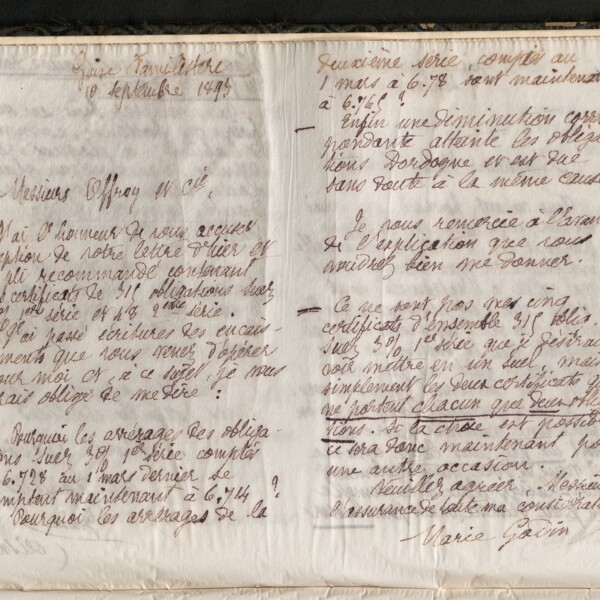 Guise Familistère
10 septembre 1895
Messieurs Offroy et Cie,
J'ai l'honneur de vous accuser
ception de votre lettre d'hier et
pli recommandé contenant
certificats de 315 obligations Suez
1ère série et 48 2ème série.
J'ai passé écritures des encais-
sements que vous venez d'opérer
pour moi et, à ce sujet, je vous
rais obligé de me dire :
Pourquoi les arrérages des obliga-
ons Suez 3% 1ère série comptés
6.728 au 1 mars dernier se
comptent maintenant à 6.714 ?
Pourquoi les arrérages de la
deuxième série, comptés au
1 mars à 6.78 sont maintenan
à 6.765 ?
Enfin une diminution corr
pondante atteint les obliga
tions Dordogne et est due
sans doute à la même cause
Je vous remercie à l'avan
de l'explication que vous
voudrez bien me donner.
Ce ne sont pas mes cinq
certificats d'ensemble 315 oblig.
Suez 3% 1ère série que je désirai
voir mettre en un seul, mais
simplement les deux certificats q
ne portent chacun que deux oblig
tions. Si la chose est possib
ce sera donc maintenant po
une autre occasion.
Veuillez agréer, Messieu
l'assurance de toute ma considérat
Marie Godin